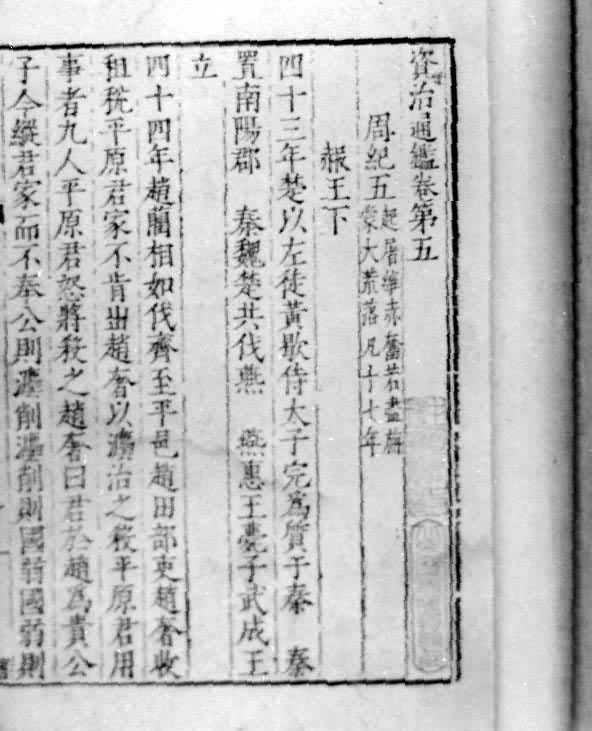 資治通鑑卷第五
周紀五起屠維赤奮若盡旃
蒙大荒落凡十七年
赧王下
四十三年楚以左徒黃歇侍太子完為質于秦 秦
置南陽郡 秦魏楚共伐燕 燕惠王薨子武成王
立
四十四年趙藺相如伐齊至平邑趙田部吏趙奢收
租稅平原君家不肯出趙奢以灋治之殺平原君用
事者九人平原君怒將殺之趙奢曰君於趙為貴公
子今縱君家而不奉公則灋削灋削則國弱國弱則